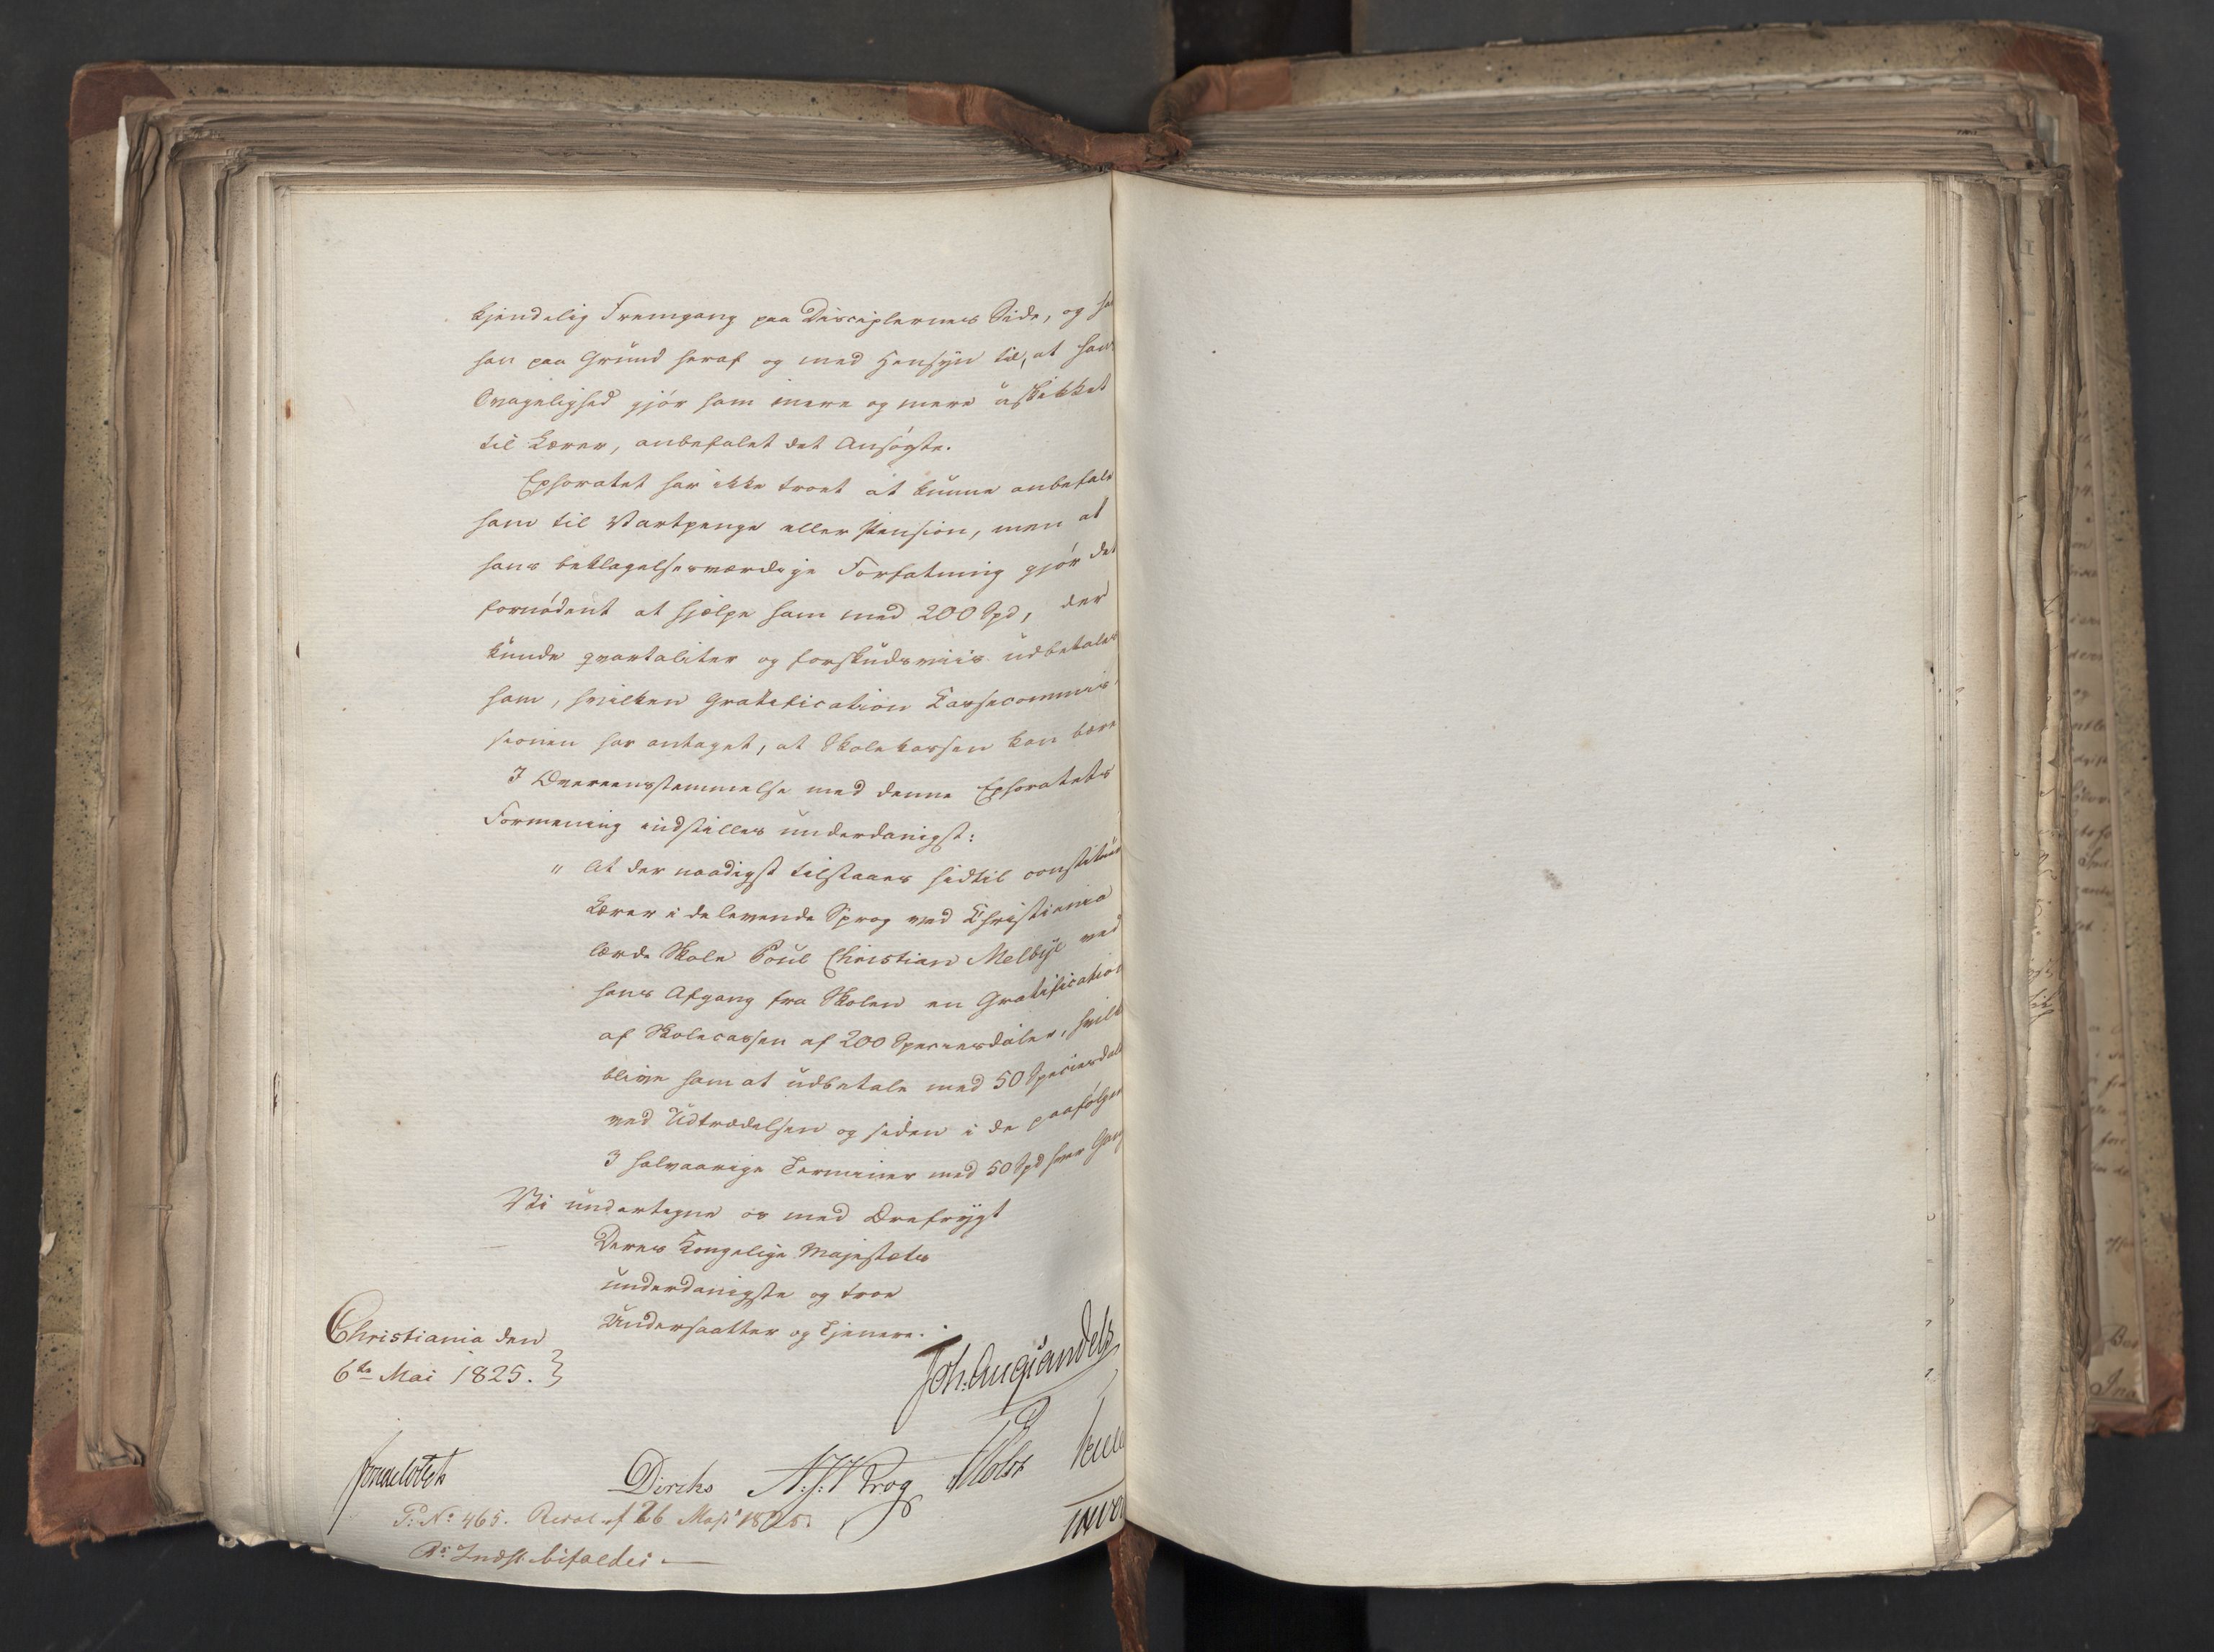 kjendelig Fremgang paa Disciplernes Side, og ha
han paa Grund heraf og med Hensyn til, at hans
Svagelighed gjør ham mere og mere uskikket
til Lærer, anbefalet det Ansøgte.
Ephoratet har ikke troet at kunne anbefale
ham til Vartpenge eller Pension, men at
hans beklagelsesværdige Forfatning gjør det
fornødent at hjelpe ham med 200 Spd, der
kunde qvartaliter og forskudsviis udbetales
ham, hvilken Gratification Cassecommis
sionen har antaget, at Skolekassen kan bære
I Overeensstemmelse med denne Ephoratets
Formening indstilles underdanigst:
" At der naadigst tilstaaes hidtil constitue
Lærer i de levende Sprog ved Christiania
lærde Skole Poul Christian Melbye ved
hans Afgang fra Skolen en Gratification
af Skolecassen af 200 Speciesdaler, hvilk
blive ham at udbetale med 50 Speciesdale
ved Udtrædelsen og siden i de paafølgen
3 halvaarige Terminer med 50 Spd hver Gang
Vi undertegne os med Ærefrygt
Deres Kongelige Majestæts
underdanigste og troe
Undersaatter og Tjenere.
Christiania den
6te Mai 1825.
Joh. Aug Sandels
Diriks
P: No 465. Resol. af 26 Maji 1825.
Ds Indst. bifaldes